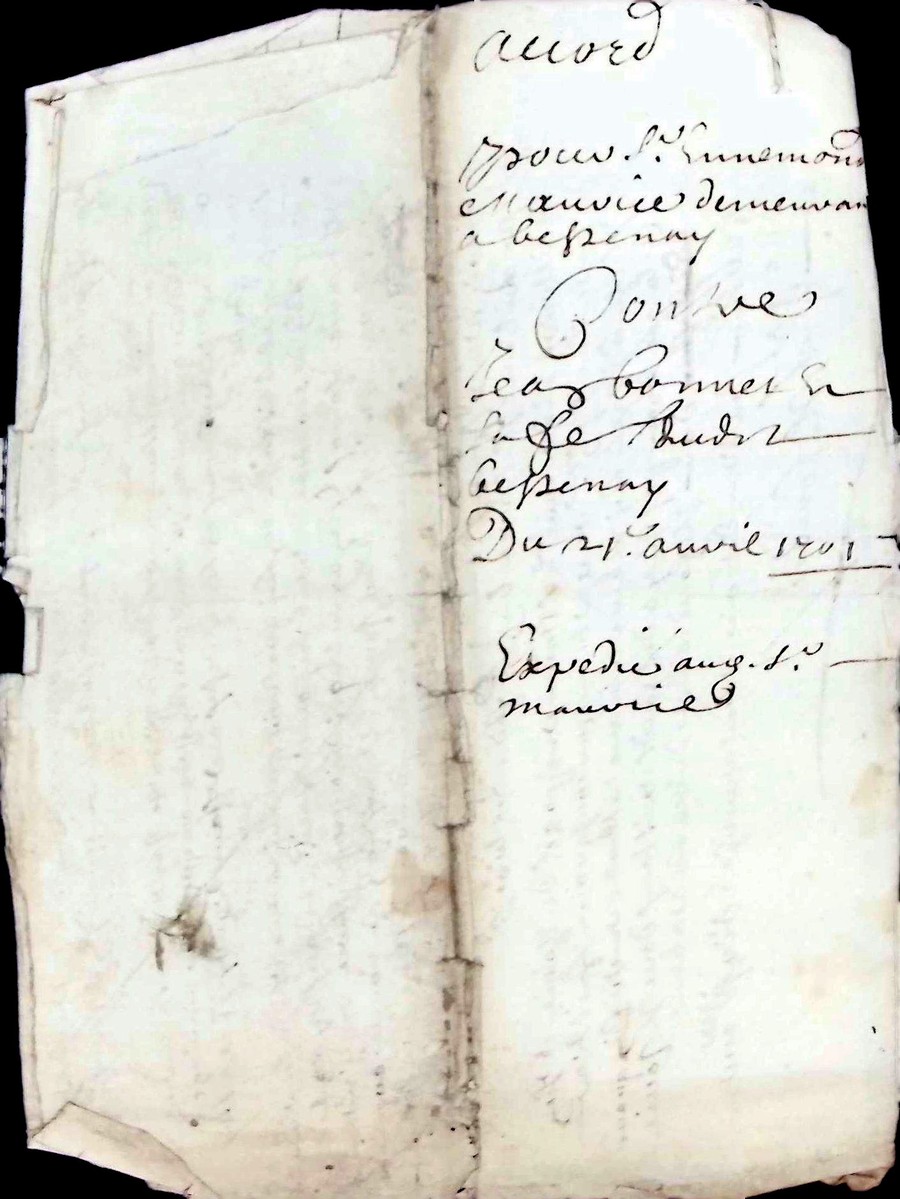 accord
pour Sr. Ennemond
Mauvice demeuran
a bessenay
Contre
Jean bonnet Et
sa fe
bessenay
Du 21e. auril 1701
Expedié aud. Sr.
mauvice